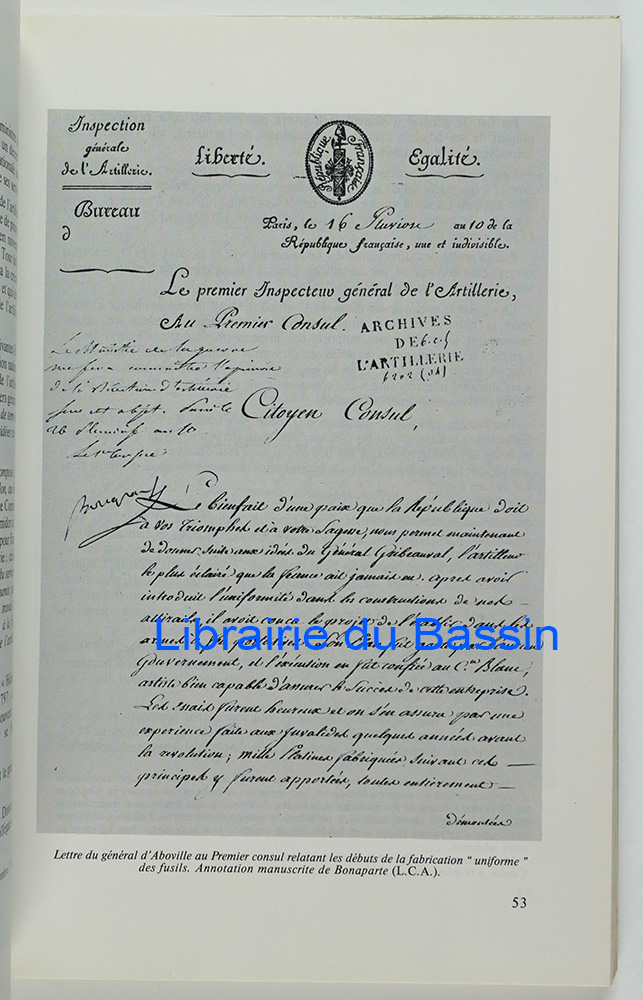 Inspection
générale
de l'Artillerie.
Liberté.
République Française
Egalité.
Bureau
d
Paris, le 16 Pluviose an 10 de la
République française, une et indivisible.
Le premier Inspecteur général de l'Artillerie,
Au Premier Consul.
ARCHIVES
DE
L'ARTILLERIE
Le Ministre de la guerre
me fera
de la direction d'artillerie
sur cet objet. Paris le
26 Pluviose an 10
Citoyen Consul,
Le bienfait d'une paix que la République doit
à vos Triomphes et à votre Sagesse, nous permet maintenant
de donner suite aux idées du Général Gribeauval, l'artilleur
le plus éclairé que la france ait jamais eu. après avoir
introduit l'uniformité dans les constructions de nos
attirails, il avoit conçu le projet de l'établir dans les
armes
Gouvernement, et l'exécution en fut confiée au C.en Blanc,
artiste bien capable d'assurer le Succès de cette entreprise.
Les essais furent heureux et on s'en assura par une
experience faite aux Invalides quelques années avant
la revolution; mille Platines fabriquées suivant ces
principes y furent apportées, toutes entièrement
démontées
Librairie du Bassin
Lettre du général d'Aboville au Premier consul relatant les débuts de la fabrication " uniforme "
des fusils. Annotation manuscrite de Bonaparte (L.C.A.).
53